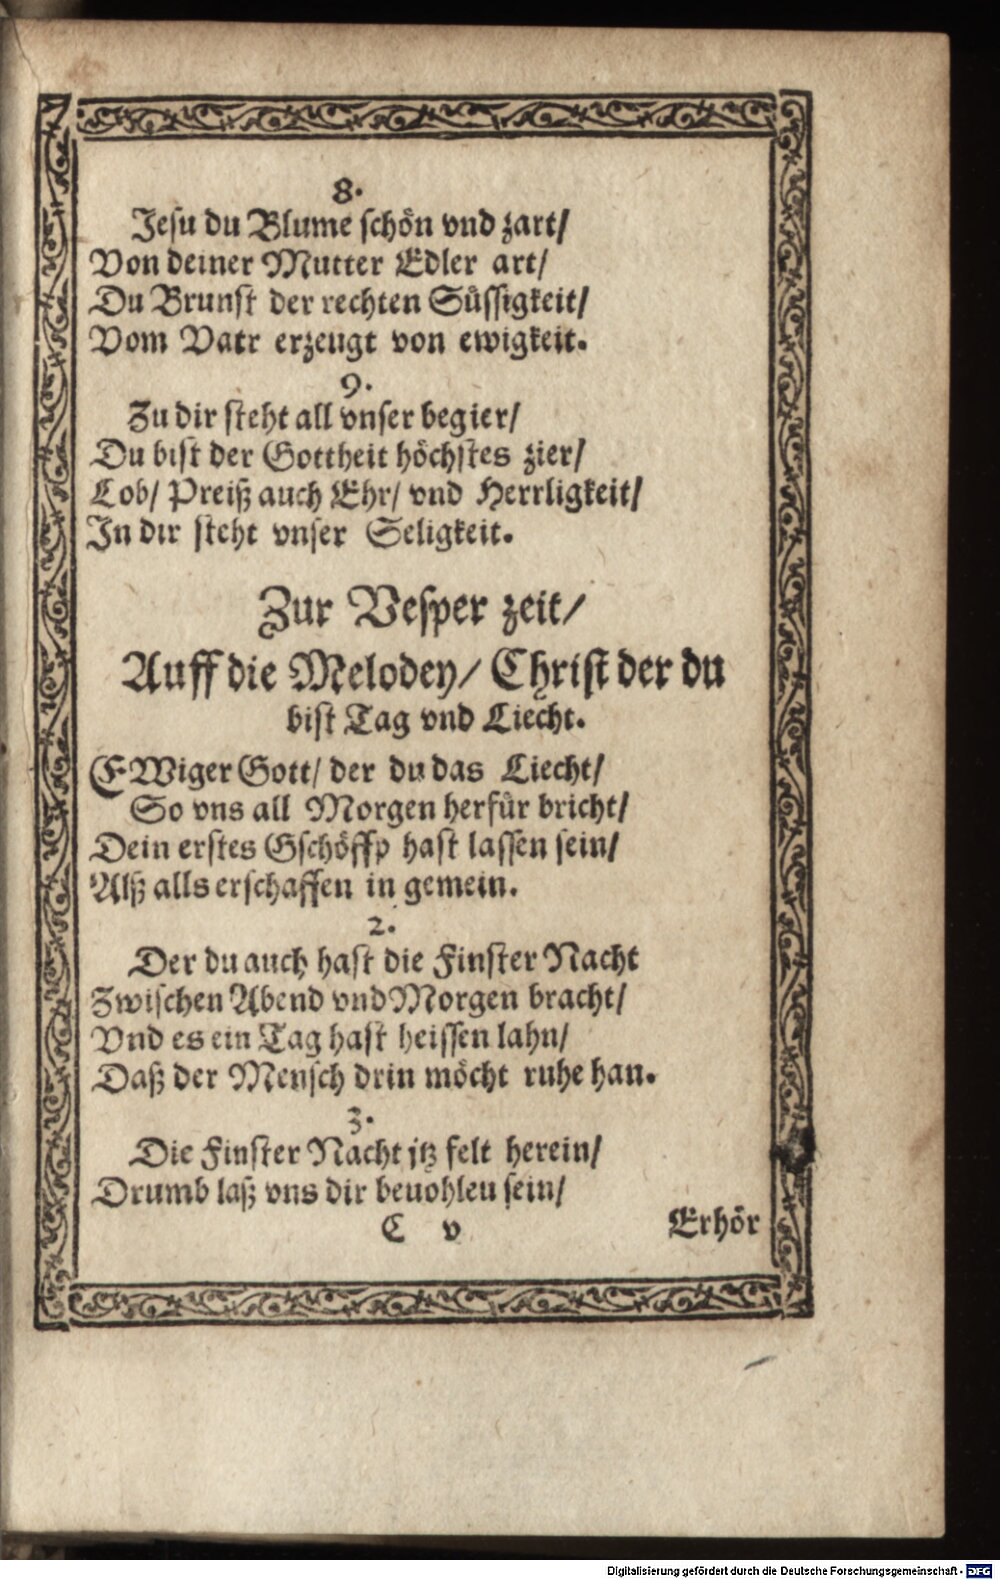 8.
Jesu du Blume schön vnd zart/
Von deiner Mutter Edler art/
Du Brunst der rechten Süssigkeit/
Vom Vatr erzeugt von ewigkeit.
9.
Zu dir steht all vnser begier/
Du bist der Gottheit höchstes zier/
Lob/ Preiß auch Ehr/ vnd Herrligkeit/
In dir steht vnser Seligkeit.
Zur Vesper zeit/
Auff die Melodey/ Christ der du
bist Tag vnd Liecht.
EWiger Gott/ der du das Liecht/
So vns all Morgen herfür bricht/
Dein erstes Gschöffp hast lassen sein/
Alß alls erschaffen in gemein.
2.
Der du auch hast die Finster Nacht
Zwischen Abend vnd Morgen bracht/
Vnd es ein Tag hast heissen lahn/
Daß der Mensch drin möcht ruhe han.
3.
Die Finster Nacht jtz felt herein/
Drumb laß vns dir beuohleu sein/
C v Erhör
Digitalisierung gefördert durch die Deutsche Forschungsgemeinschaft - DFG